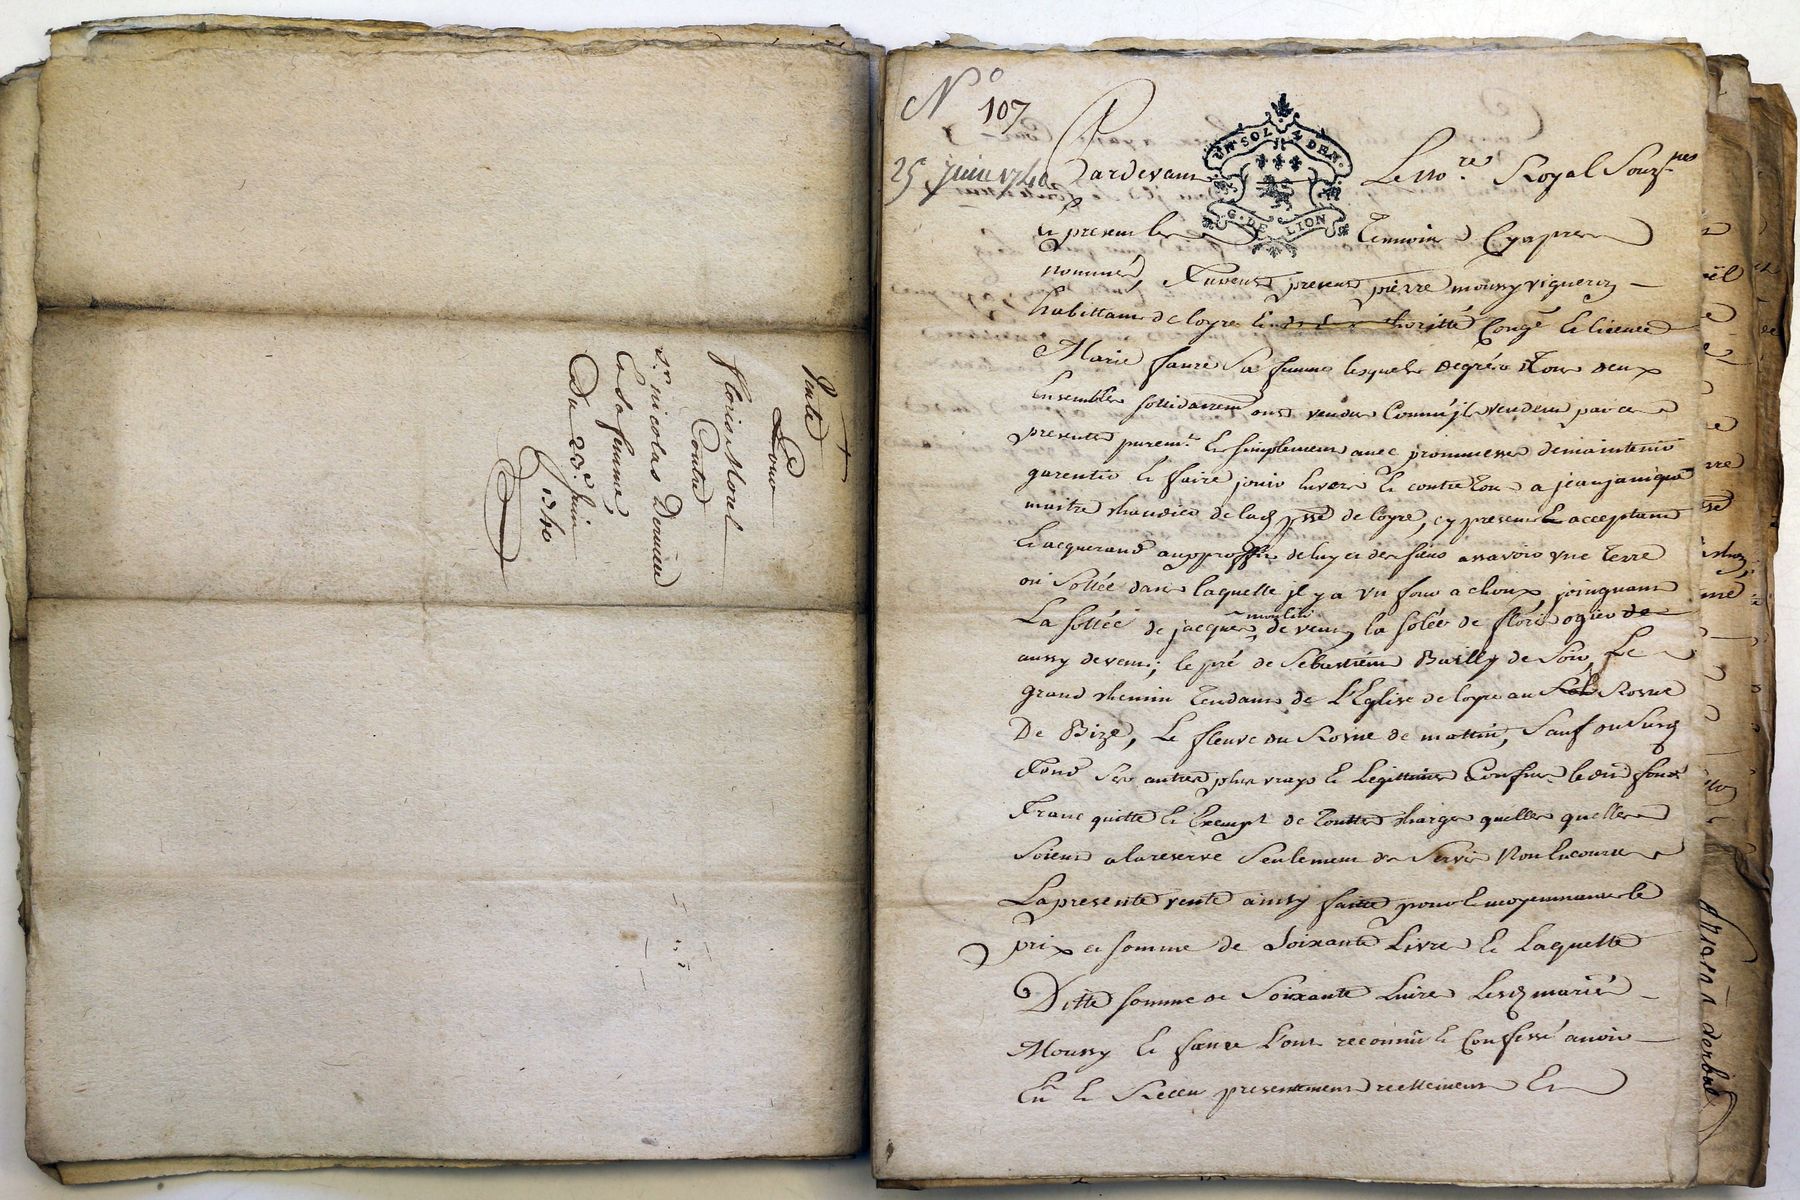 Vente
Pour
floris Morel
Contre
Sr. nicolas
Et sa femme,
Du 23e. Juin
1740
N° 107
25 juin 1740
UN SOL 4 DEN.
G. DE LION
Pardevant Le no.re Royal Souz.nes
Et presents Temoins Cyapres
nommés, Furent presents pierre moussy vigneron
habittant de loyre Et de son authoritté Congé Et licence
Marie faure Sa femme lesquels de gré Tous deux
Ensembles sollidairemt ont vendus Comm'jls vendent par ces
presentes purem.t Et simplement avec prommesse de maintenir
garentir Et faire jouir Envers Et contre Tous a jean janique
maitre de lad. psse de loyre, cy present Et acceptant
Et acquerant au proffit de luy et des siens assavoir une Terre
ou Sollée dans laquelle jl y a un four a chaux joingnant
La sollée de jacques moulin de vent, la solée de floris ogier de
aussy de vent; le pré de Sébastien Bailly de Soir, Le
grand chemin Tendant de L'Eglise de loyre au Rosne
De Bize, Le fleuve du Rosne de mattin, Sauf ou Surs
Sont Ses autres plus vrays Et Légittimes Confins ledit fond
Franc quitte Et Exempt de Touttes charges quelles quelles
Soient a la reserve Seulement du Servis Non Encourru
La presente vente ainsy faitte pour Et moyennant le
prix et somme de Soixante Livres Et Laquelle
Ditte somme de Soixante Livres Lesd. mariés
Moussy Et faure L'ont reconnu Et Confessé avoir
Eu Et Receu presentement reellement Et